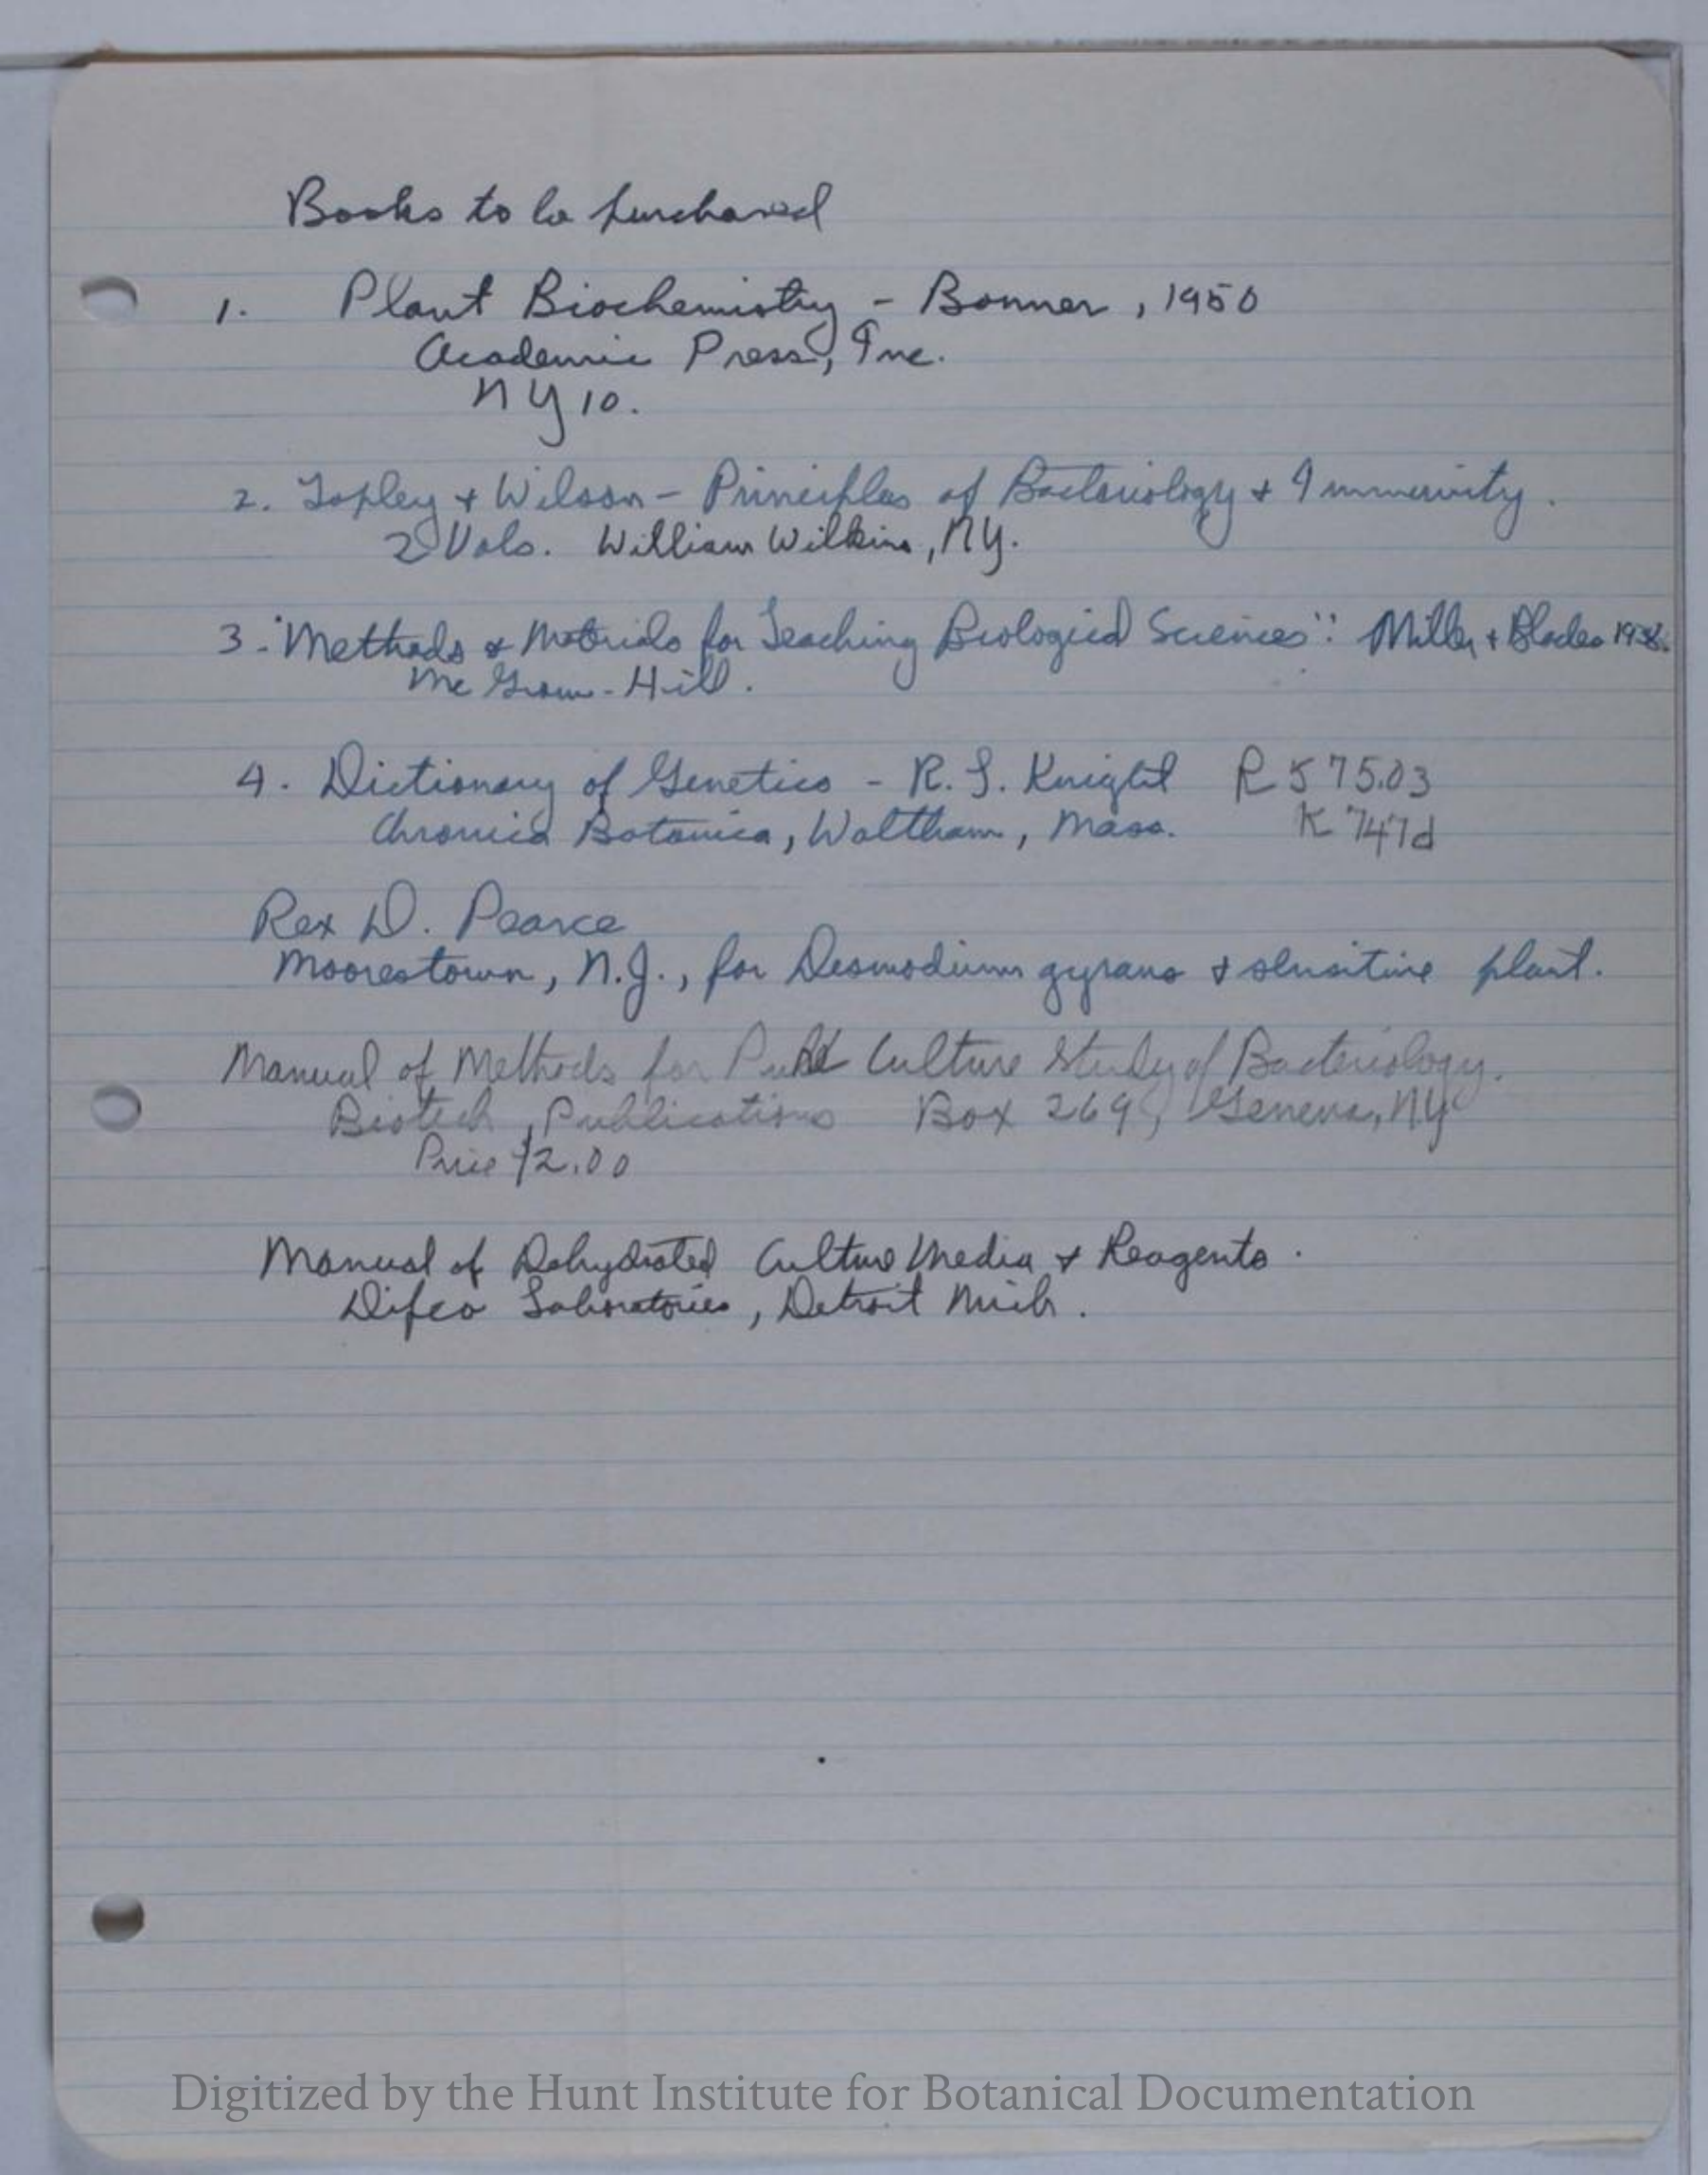 Books to be purchased
1. Plant Biochemistry - Bonner, 1950
Academic Press, Inc.
NY 10.
2. Topley + Wilson - Principles of Bacteriology + Immunity.
2 Vols. William Wilkins, NY.
3. "Methods & Materials for Teaching Biological Sciences": Miller + Blades 1938.
McGraw-Hill.
4. Dictionary of Genetics - R. L. Knight R 575.03
Chronica Botanica, Waltham, Mass. K 747d
Rex D. Pearce
Moorestown, N.J., for Desmodium gyrans & sensitive plant.
Manual of Methods for Pure Culture Study of Bacteriology.
Biotech Publications Box 269, Geneva, NY
Price $2.00
Manual of Dehydrated Culture Media & Reagents.
Difco Laboratories, Detroit Mich.
Digitized by the Hunt Institute for Botanical Documentation